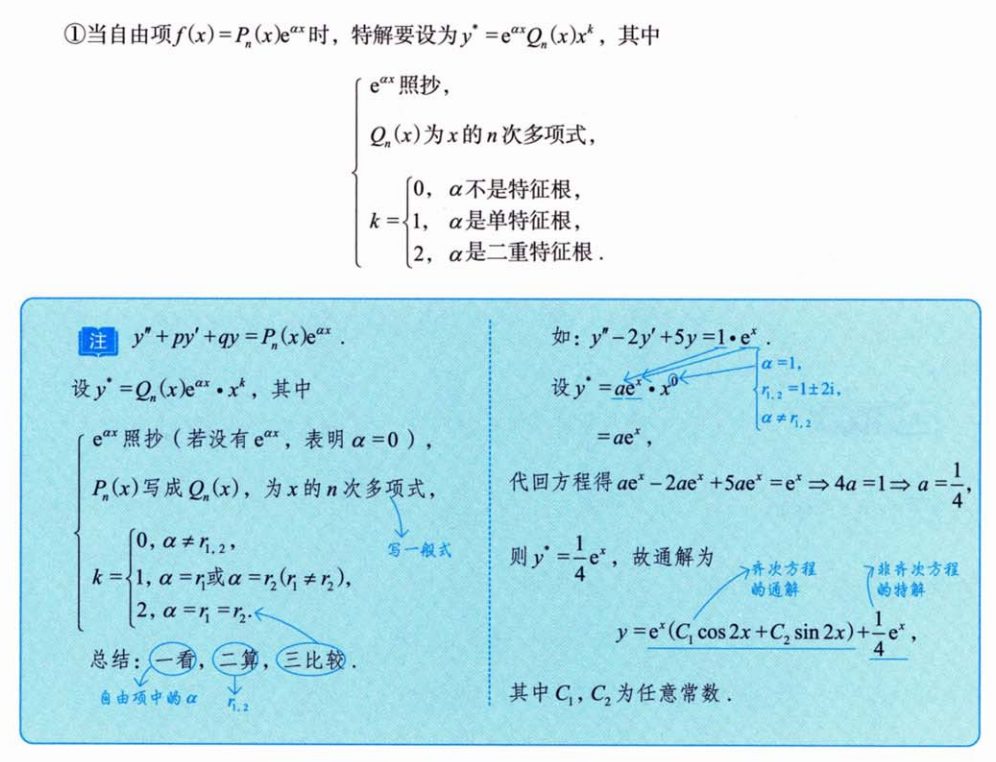 ①当自由项f(x)=Pₙ(x)e^{αx}时，特解要设为y*=e^{αx}Qₙ(x)x^k，其中
e^{αx}照抄，
Qₙ(x)为x的n次多项式，
k=
0，α不是特征根，
1，α是单特征根，
2，α是二重特征根．
注 y″+py′+qy=Pₙ(x)e^{αx}．
设y*=Qₙ(x)e^{αx}·x^k，其中
e^{αx}照抄（若没有e^{αx}，表明α=0），
Pₙ(x)写成Qₙ(x)，为x的n次多项式，
写一般式
k=
0, α≠r₁,₂，
1, α=r₁或α=r₂(r₁≠r₂)，
2, α=r₁=r₂.
总结：一看，二算，三比较．
自由项中的α
r₁,₂
如：y″−2y′+5y=1·e^x．
设y*=ae^x·x^0
α=1,
r₁,₂=1±2i,
α≠r₁,₂
=ae^x，
代回方程得ae^x−2ae^x+5ae^x=e^x⇒4a=1⇒a=\frac{1}{4}，
则y*=\frac{1}{4}e^x，故通解为
齐次方程
的通解
非齐次方程
的特解
y=e^x(C₁cos2x+C₂sin2x)+\frac{1}{4}e^x，
其中C₁, C₂为任意常数．